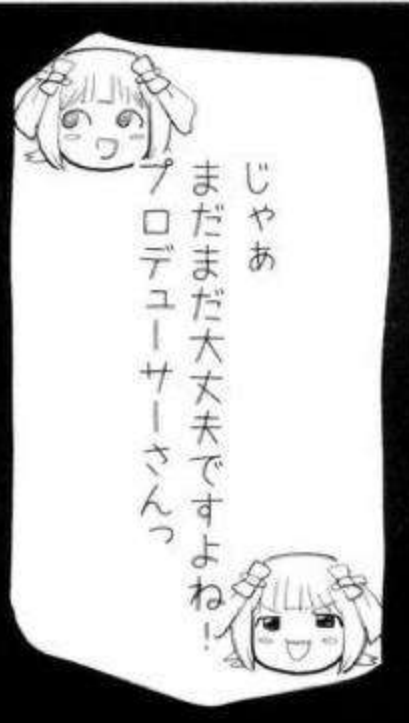 じゃあ
まだまだ大丈夫ですよね！
プロデューサーさんっ